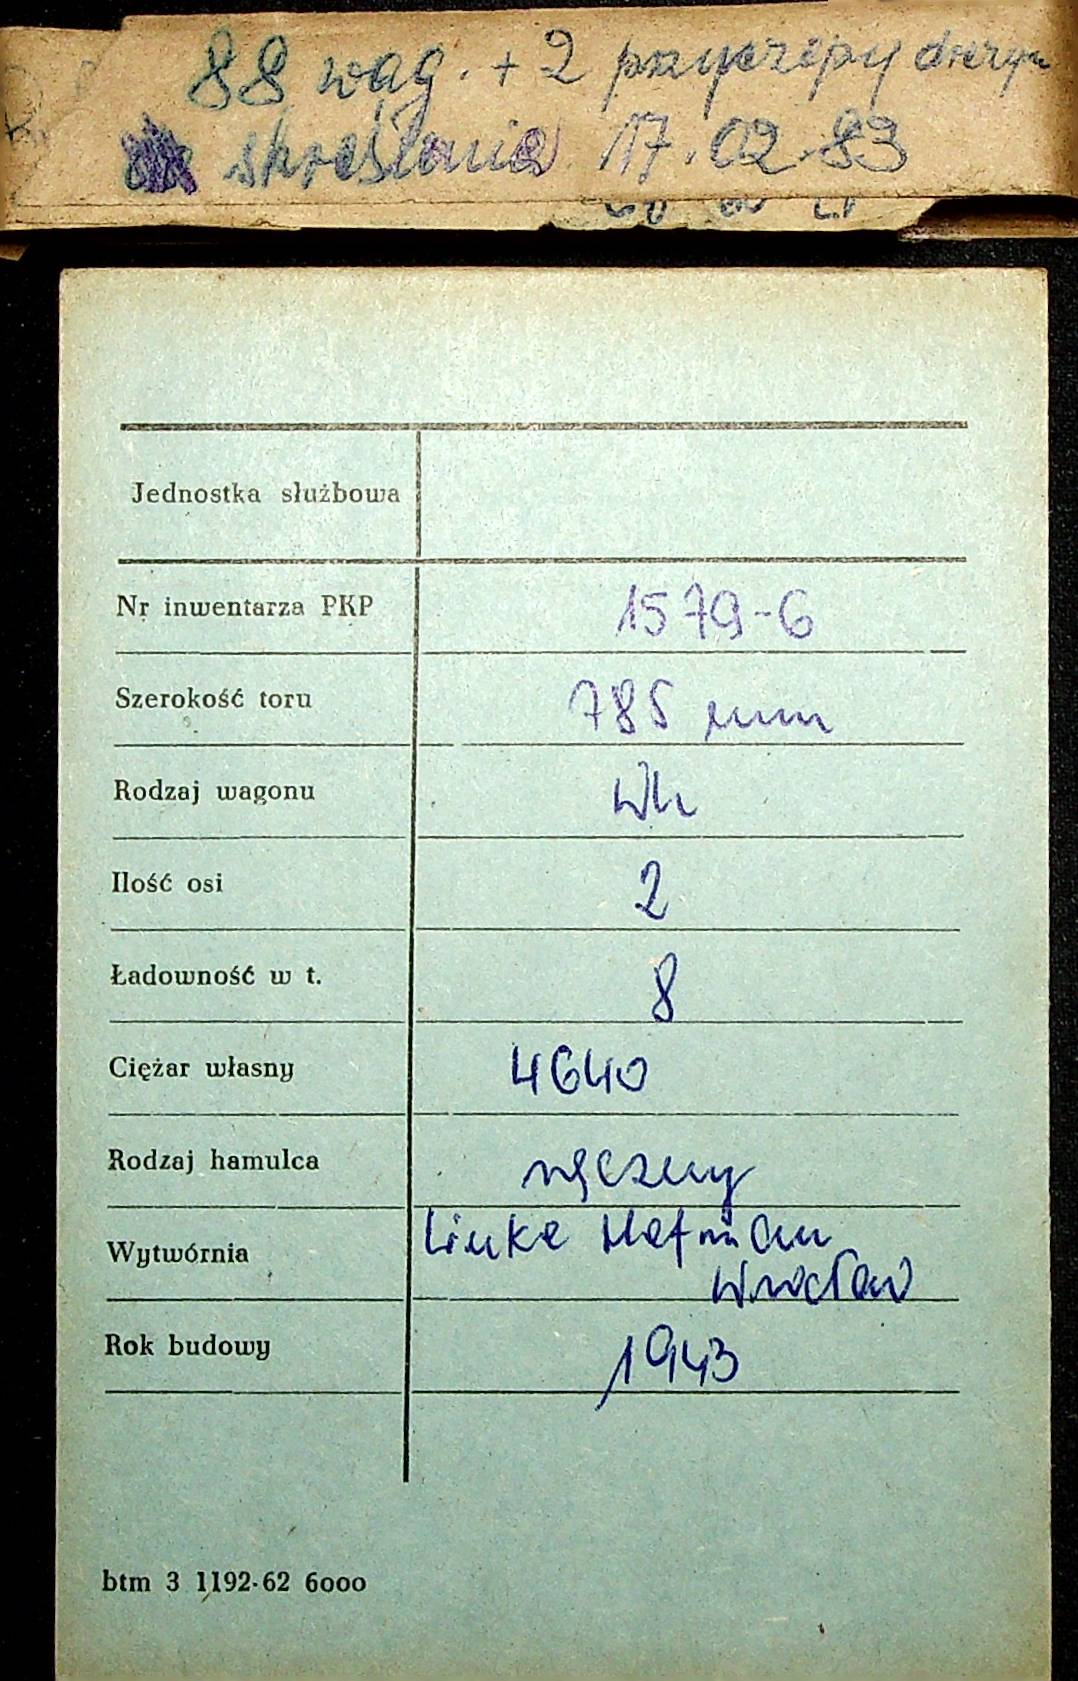 88 wag. + 2 przyczepy drezyn
skreślenia 17.02.83
Jednostka służbowa
Nr inwentarza PKP 1579-6
Szerokość toru 785 mm
Rodzaj wagonu Wh
Ilość osi 2
Ładowność w t. 8
Ciężar własny 4640
Rodzaj hamulca ręczny
Wytwórnia Linke Hofman
Wrocław
Rok budowy 1943
btm 3 1192-62 6000